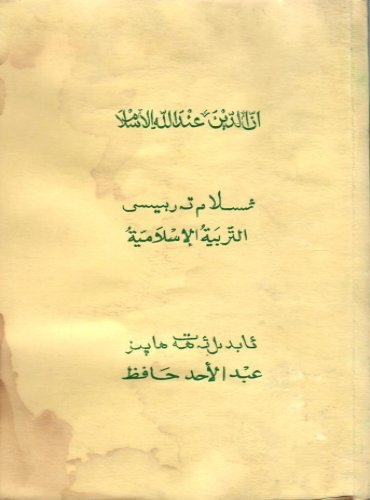 ان الدِّينَ عِنْدَ اللّٰهِ الْإِسْلَامُ
ئىسلام تەربىيىسى
التَّرْبِيَةُ الْإِسْلَامِيَّةُ
ئابدىلئەھەت ھاپىز
عَبْدُ الْأَحَدِ حَافِظ